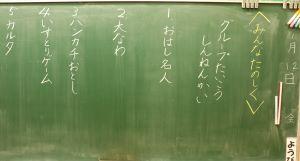 月
12
日
金
よう
＜みんなたのしく＞
グループたいこう
しんねんかい
1. おはし名人
2. 大なわ
3 ハンカチおとし
4 いすとりゲーム
5 カルタ